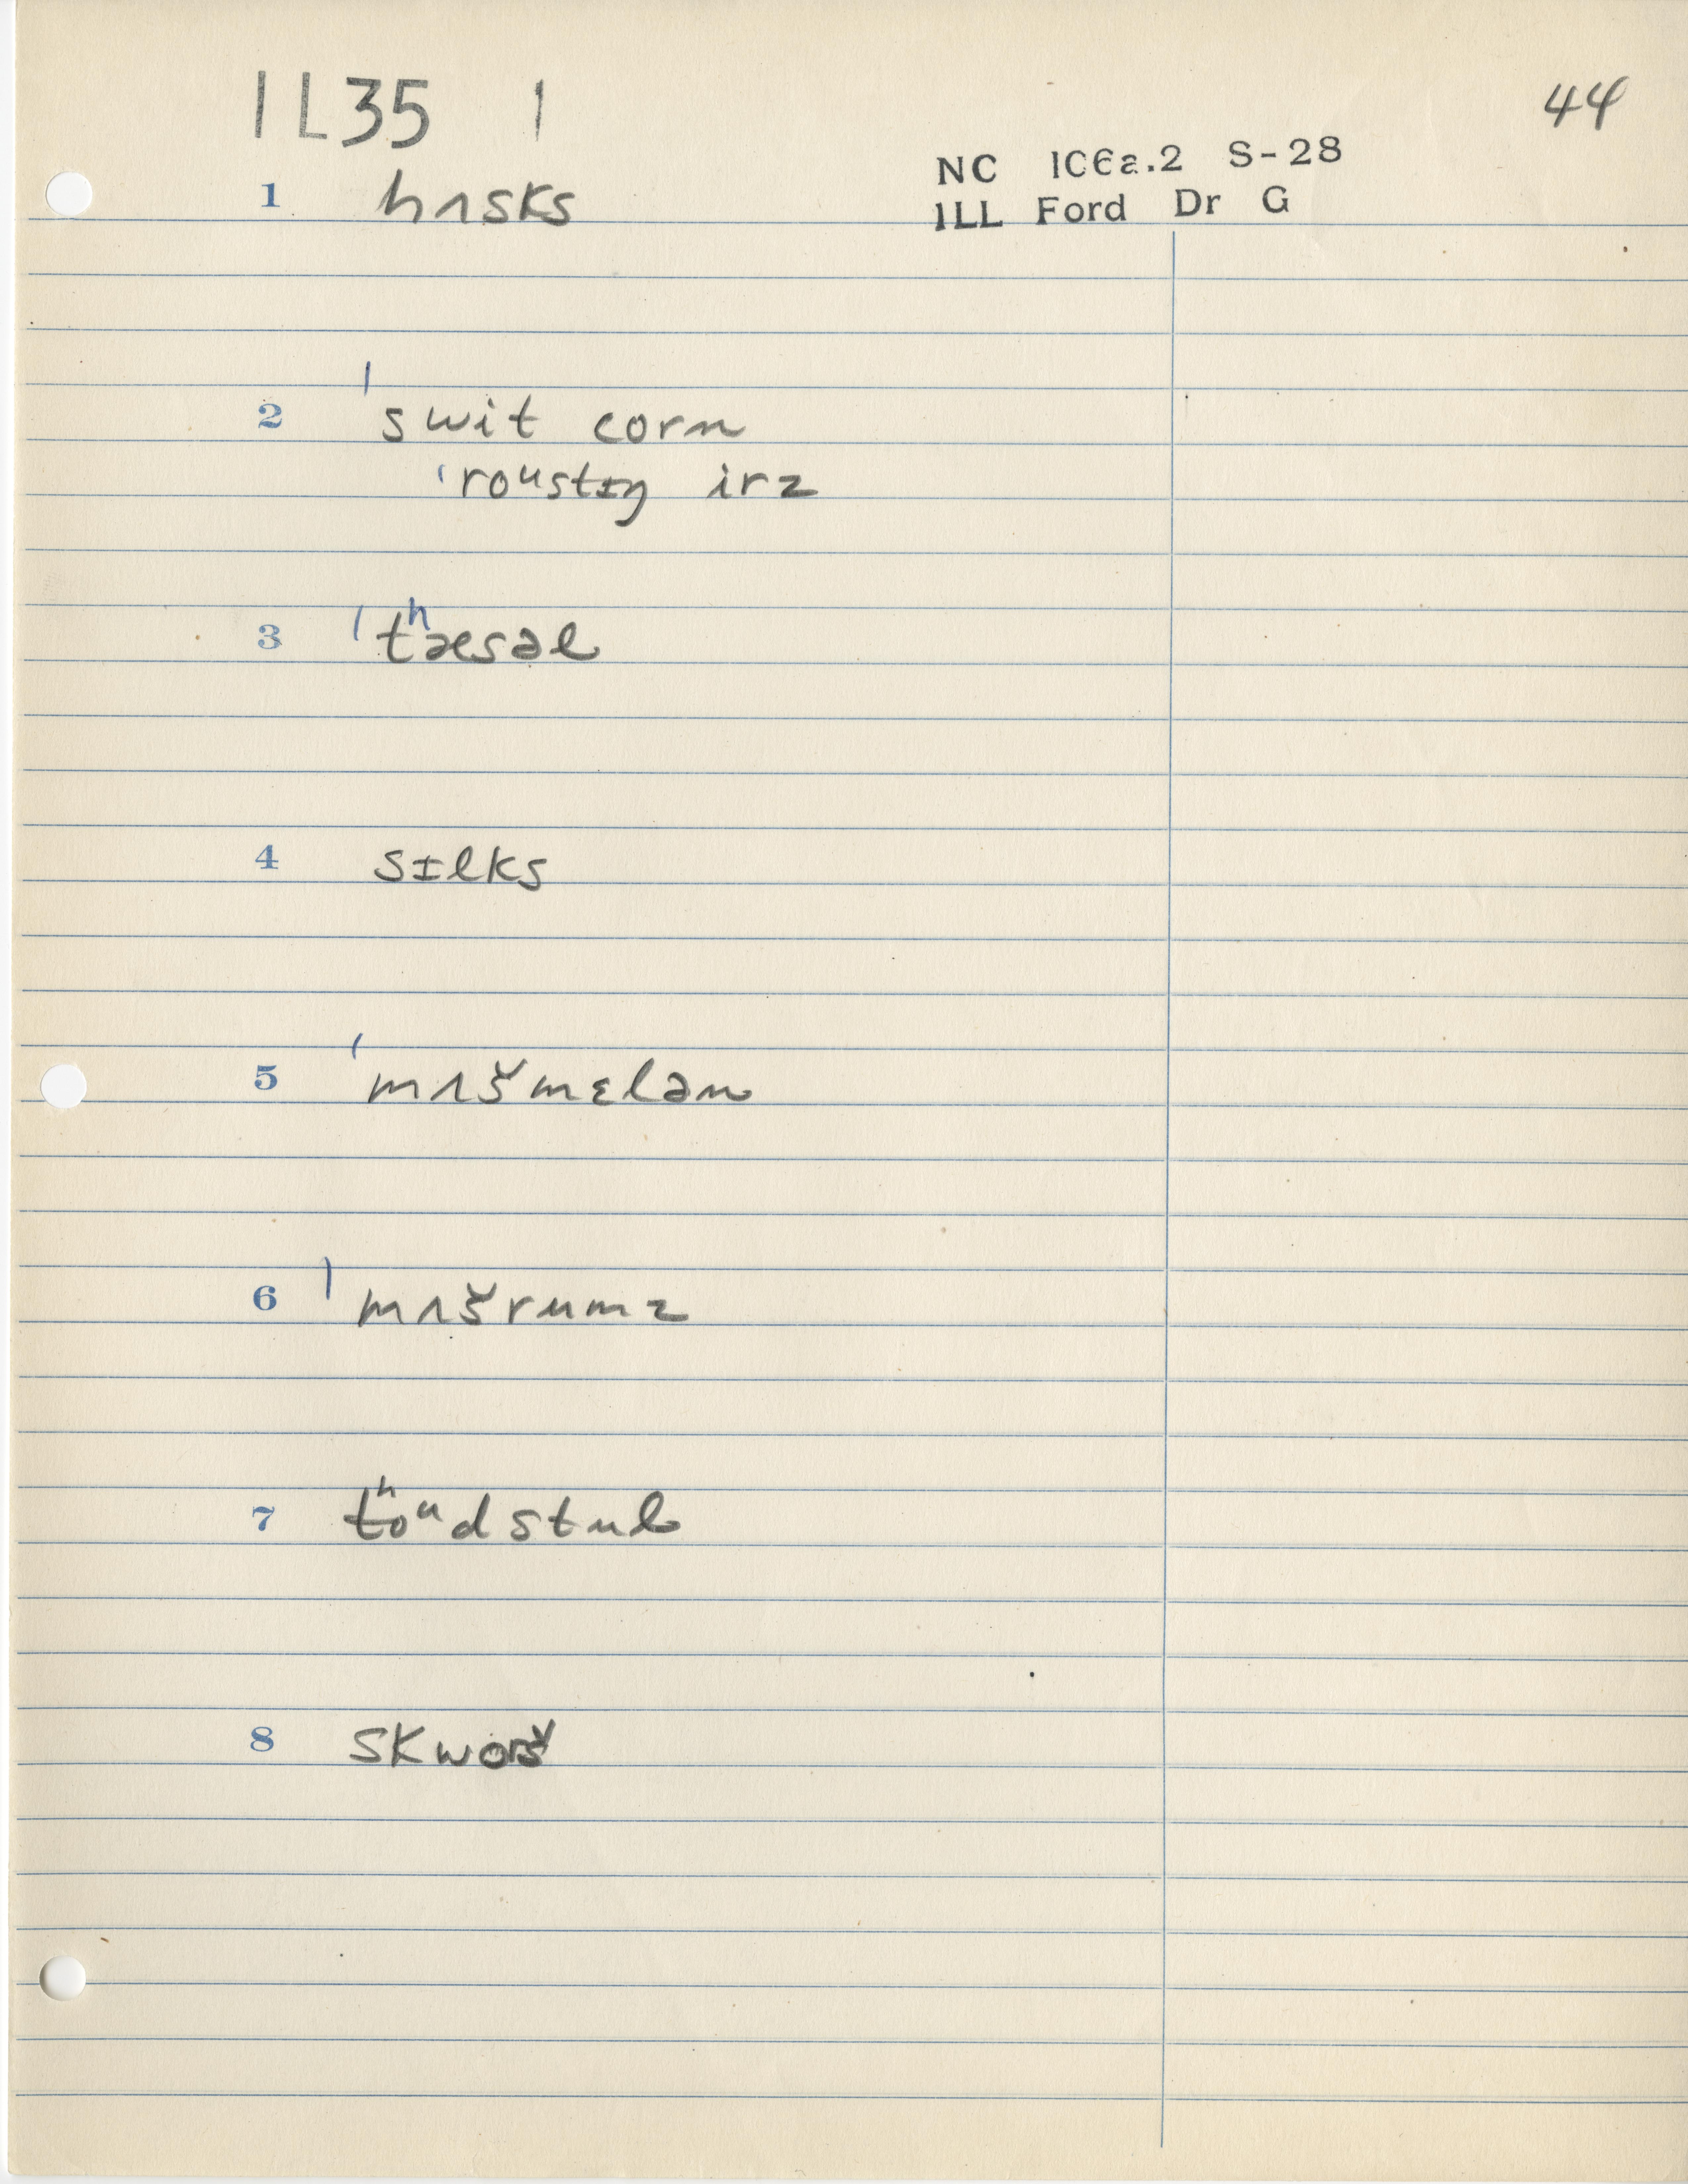 IL35 1
44
NC 106a.2 S-28
ILL Ford Dr G
1 hʌsks
2 ˈswit corn
ˈroᵘstɪŋ irz
3 ˈtʰæsəl
4 sɪlks
5 ˈmʌšmɛlən
6 ˈmʌšrumz
7 tʰoᵘdstul
8 skwɔrš